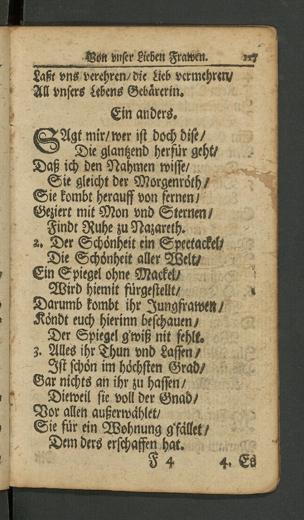 Von vnser Lieben Frawen. 127
Laßt vns verehren/ die Lieb vermehren/
All vnsers Lebens Gebärerin.
Ein anders.
SAgt mir/ wer ist doch dise/
Die glantzend herfür geht/
Daß ich den Nahmen wisse/
Sie gleicht der Morgenröth/
Sie kombt herauff von fernen/
Geziert mit Mon vnd Sternen/
Findt Ruhe zu Nazareth.
2. Der Schönheit ein Spectackel/
Die Schönheit aller Welt/
Ein Spiegel ohne Mackel/
Wird hiemit fürgestellt/
Darumb kombt ihr Jungfrawen/
Köndt euch hierinn beschauen/
Der Spiegel g'wiß nit fehlt.
3. Alles ihr Thun vnd Lassen/
Ist schön im höchsten Grad/
Gar nichts an ihr zu hassen/
Dieweil sie voll der Gnad/
Vor allen außerwählet/
Sie für ein Wohnung g'fället/
Dem ders erschaffen hat.
F 4 4. Es